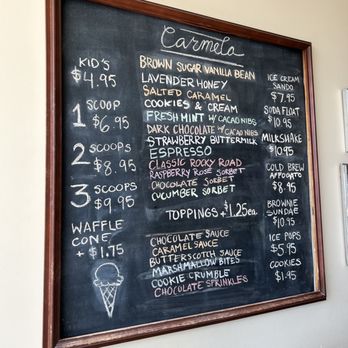 Carmela
KID'S
$4.95
1 SCOOP
$6.95
2 SCOOPS
$8.95
3 SCOOPS
$9.95
WAFFLE
CONE
+ $1.75
BROWN SUGAR VANILLA BEAN
LAVENDER HONEY
SALTED CARAMEL
COOKIES & CREAM
FRESH MINT W/ CACAO NIBS
DARK CHOCOLATE W/ CACAO NIBS
STRAWBERRY BUTTERMILK
ESPRESSO
CLASSIC ROCKY ROAD
RASPBERRY ROSE SORBET
CHOCOLATE SORBET
CUCUMBER SORBET
TOPPINGS +$1.25ea.
CHOCOLATE SAUCE
CARAMEL SAUCE
BUTTERSCOTCH SAUCE
MARSHMALLOW BITES
COOKIE CRUMBLE
CHOCOLATE SPRINKLES
ICE CREAM
SANDO
$7.95
SODA FLOAT
$10.95
MILKSHAKE
$10.95
COLD BREW
AFFOGATO
$8.95
BROWNIE
SUNDAE
$10.95
ICE POPS
$5.95
COOKIES
$1.95